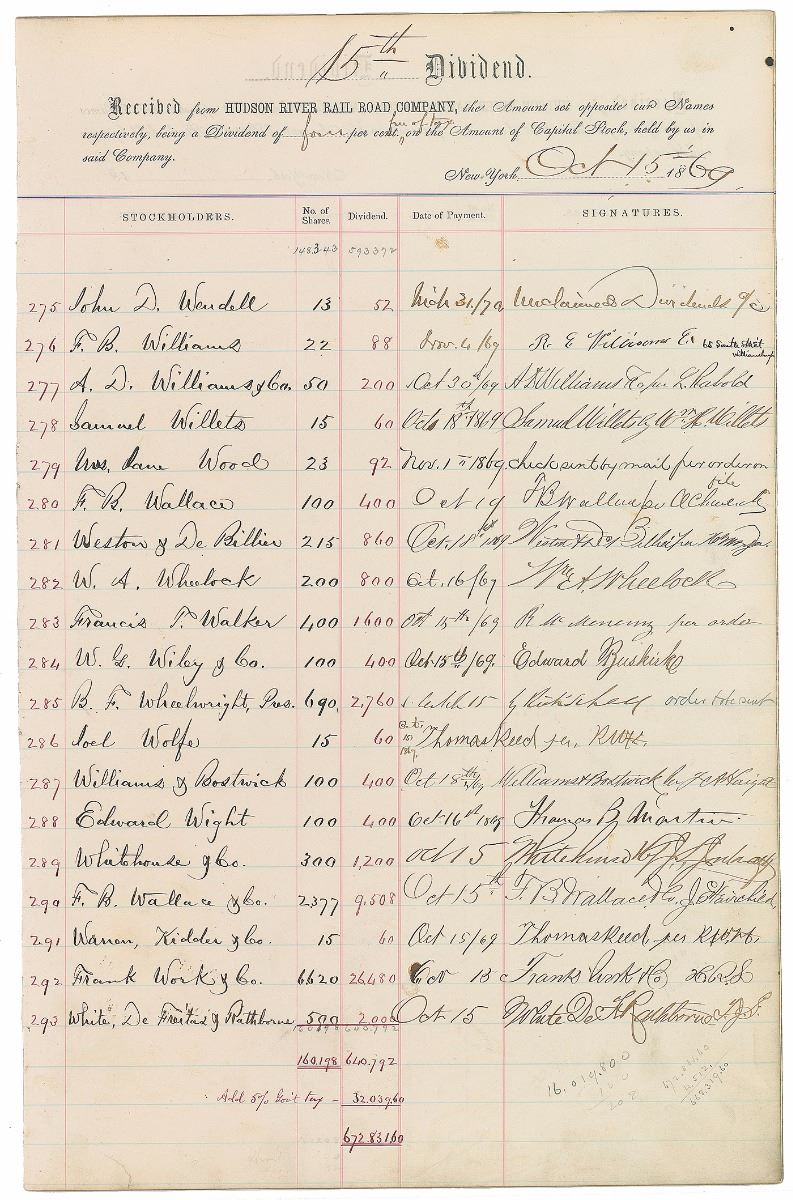 15th Dividend.
Received from HUDSON RIVER RAIL ROAD COMPANY, the Amount set opposite our Names
respectively, being a Dividend of four per cent. free of tax on the Amount of Capital Stock, held by us in
said Company.
New-York, Oct 15th 1869
STOCKHOLDERS. No. of Shares. Dividend. Date of Payment. SIGNATURES.
148.343 593372
275 John D. Wendell 13 52 Mch 31./70 Unclaimed Dividends a/c
276 F. B. Williams 22 88 Nov. 4/69 R E Williams Ex 65 South Street Williamsburgh
277 A. D. Williams & Co. 50 200 Oct 30th/69 A D Williams & Co per
278 Samuel Willets 15 60 Oct 18th 1869 Samuel Willets by Wm H. Willets
279 Mrs. Jane Wood 23 92 Nov. 1st 1869. check sent by mail per order on file
280 F. B. Wallace 100 400 Oct 19 F B Wallace per
281 Weston & De Billier 215 860 Oct. 18th 1869 Weston & De Billier per
282 W. A. Wheelock 200 800 Oct. 16/69 Wm A. Wheelock
283 Francis T. Walker 400 1600 Oct 15th/69 R per order
284 W. G. Wiley & Co. 100 400 Oct. 15th/69. Edward Buskirk
285 B. F. Wheelwright, Pres. 690, 2,760 15 order to be sent
286 Joel Wolfe 15 60 Oct. 15 1869. Thomas Reed per,
287 Williams & Bostwick 100 400 Oct 18th/69 Williams & Bostwick by Haight
288 Edward Wight 100 400 Oct 16st 1869 Thomas B. Martin
289 Whitehouse & Co. 300 1,200 Oct 15 Whitehouse & Co
290 F. B. Wallace & Co. 2377 9,508 Oct 15th F. B. Wallace & Co. J Fairchild
291 Warren, Kidder & Co. 15 60 Oct 15/69 Thomas Reed per
292 Frank Work & Co. 6620 26,480 Frank Work & Co
293 White, De Freitas & Rathborne 500 2000 Oct 15 White De F Rathborne
160,198 640,792
160,198 640,792
Add 5% Gov't tax – 32.039.60
672.831.60
16.019.800
672.831.60